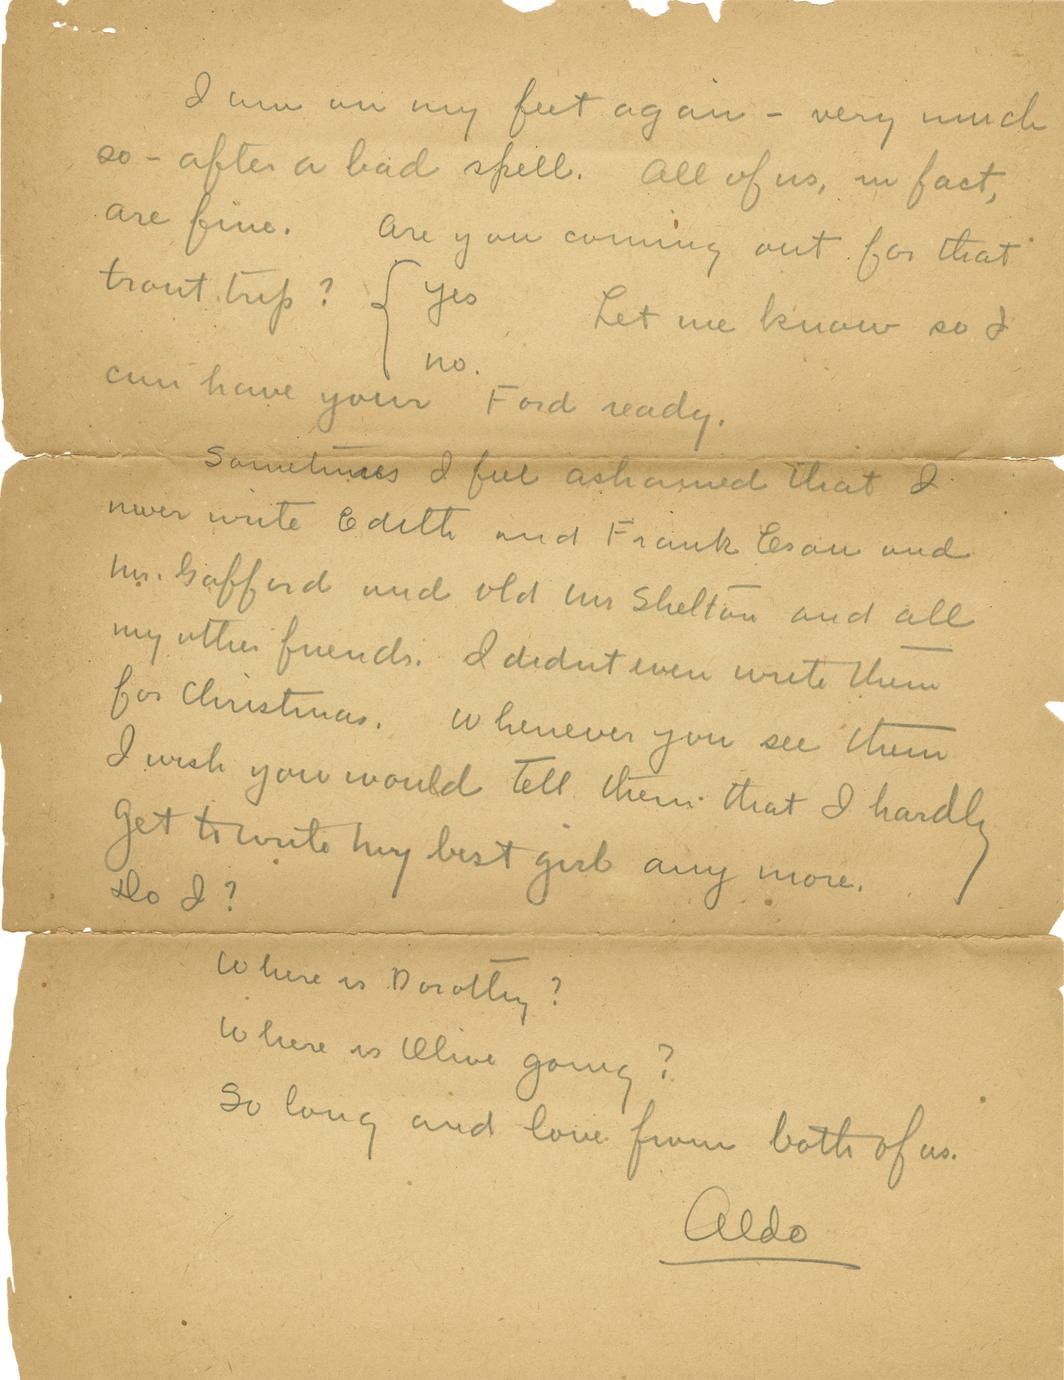 I am on my feet again - very much
so - after a bad spell. All of us, in fact,
are fine. Are you coming out for that
trout trip? { yes Let me know so I
no.
can have your Ford ready.
Sometimes I feel ashamed that I
never write Edith and Frank Esau and
Mr. Gafford and old Mr Shelton and all
my other friends. I didn't even write them
for Christmas. Whenever you see them
I wish you would tell them that I hardly
get to write my best girl any more.
Do I?
Where is Dorothy?
Where is Olive going?
So long and love from both of us.
Aldo